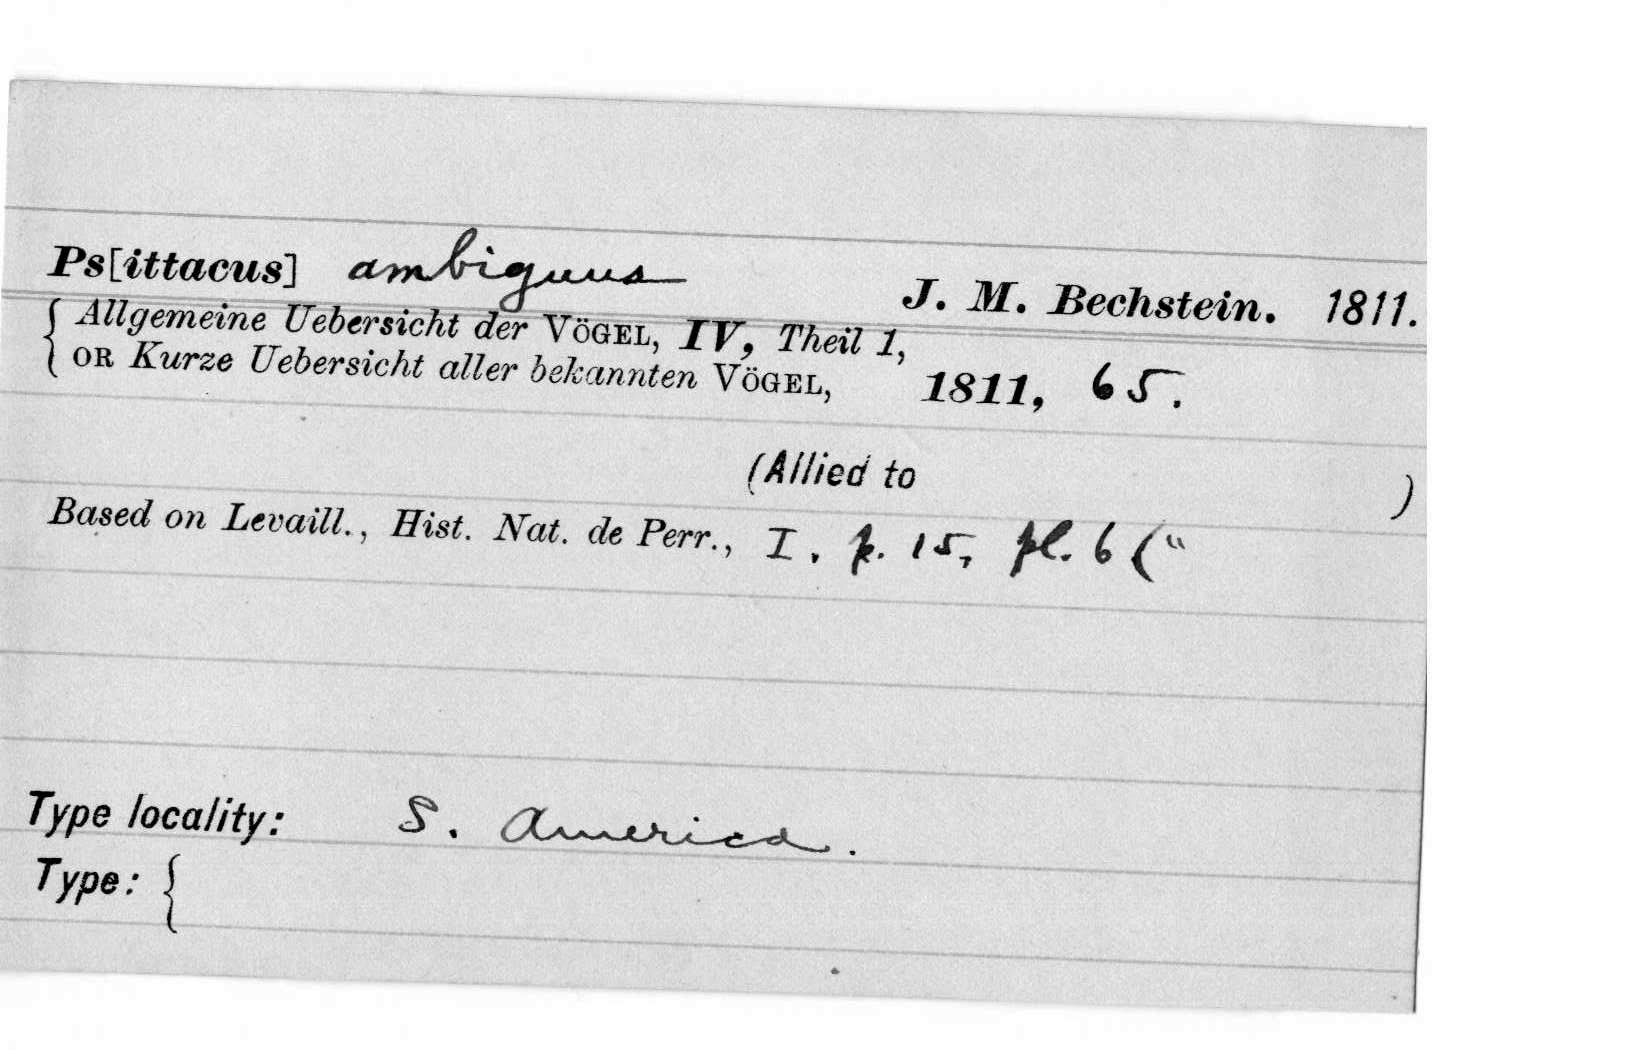 Ps[ittacus] ambiguus J. M. Bechstein. 1811.
{ Allgemeine Uebersicht der VÖGEL, IV, Theil 1,
OR Kurze Uebersicht aller bekannten VÖGEL, 1811, 65.
(Allied to )
Based on Levaill., Hist. Nat. de Perr., I. p. 15, pl. 6 (“
Type locality: S. America.
Type: {